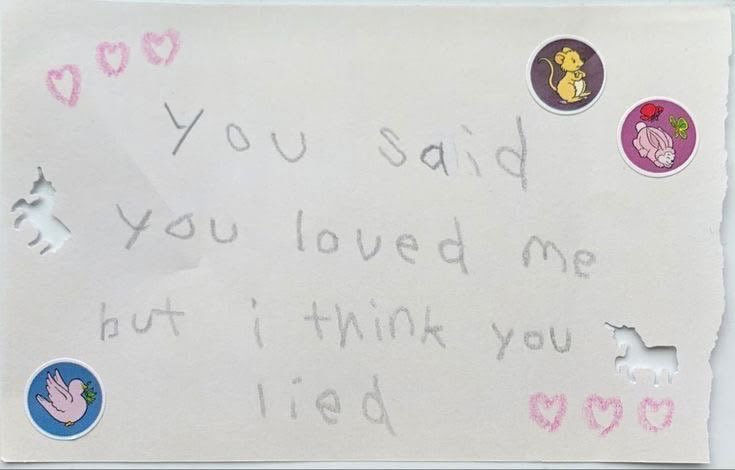 you said
you loved me
but i think you
lied